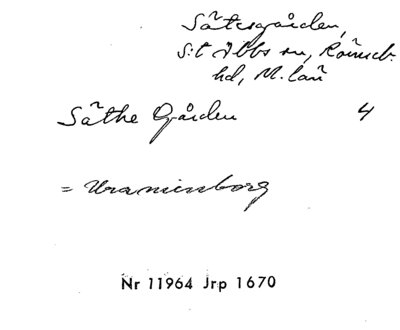 Sätesgården,
S:t Ibbs sn, Rönneb.
hd, M.län
Säthe Gården 4
= Uranienborg
Nr 11964 Jrp 1670